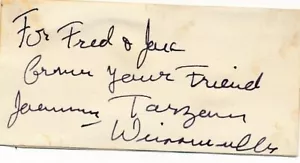 For Fred & Jack
From Your Friend
Johnny Tarzan
Weissmuller